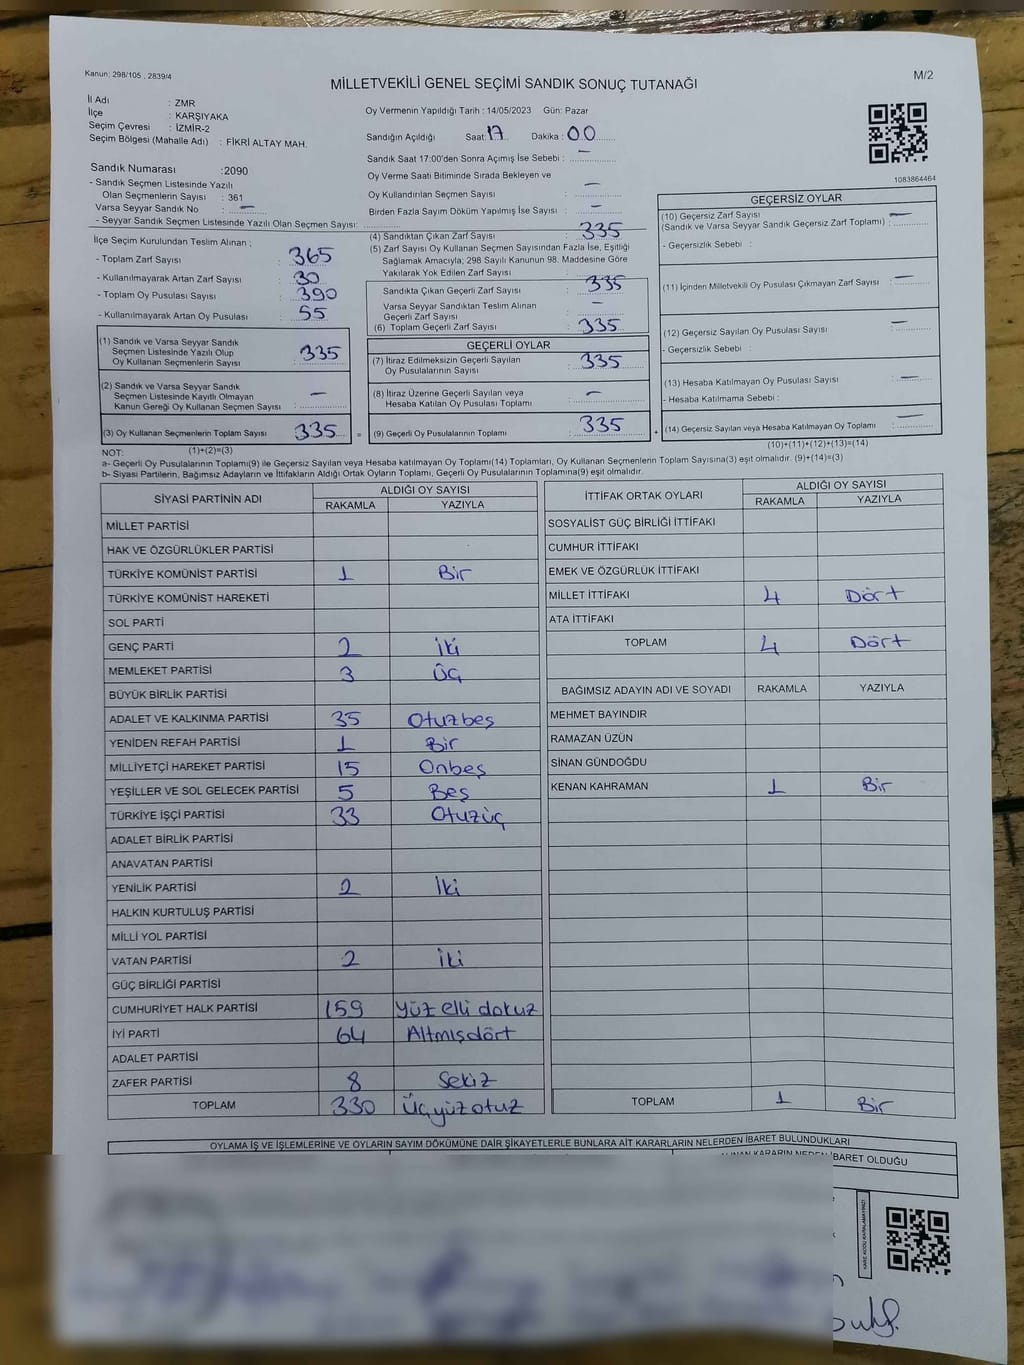 Kanun: 298/105 , 2839/4
M/2
MİLLETVEKİLİ GENEL SEÇİMİ SANDIK SONUÇ TUTANAĞI
İl Adı : ZMR
İlçe : KARŞIYAKA
Seçim Çevresi : İZMİR-2
Seçim Bölgesi (Mahalle Adı) : FİKRİ ALTAY MAH.
Oy Vermenin Yapıldığı Tarih : 14/05/2023 Gün: Pazar
Sandığın Açıldığı Saat: 17 Dakika : 00
Sandık Saat 17:00'den Sonra Açmış İse Sebebi : —
Oy Verme Saati Bitiminde Sırada Bekleyen ve
Oy Kullandırılan Seçmen Sayısı : —
Birden Fazla Sayım Döküm Yapılmış İse Sayısı : —
1083864464
Sandık Numarası :2090
- Sandık Seçmen Listesinde Yazılı
Olan Seçmenlerin Sayısı : 361
Varsa Seyyar Sandık No : —
- Seyyar Sandık Seçmen Listesinde Yazılı Olan Seçmen Sayısı:
İlçe Seçim Kurulundan Teslim Alınan ;
- Toplam Zarf Sayısı : 365
- Kullanılmayarak Artan Zarf Sayısı : 30
- Toplam Oy Pusulası Sayısı : 390
- Kullanılmayarak Artan Oy Pusulası : 55
(1) Sandık ve Varsa Seyyar Sandık
Seçmen Listesinde Yazılı Olup
Oy Kullanan Seçmenlerin Sayısı : 335
(2) Sandık ve Varsa Seyyar Sandık
Seçmen Listesinde Kayıtlı Olmayan
Kanun Gereği Oy Kullanan Seçmen Sayısı : —
(3) Oy Kullanan Seçmenlerin Toplam Sayısı : 335
(4) Sandıktan Çıkan Zarf Sayısı : 335
(5) Zarf Sayısı Oy Kullanan Seçmen Sayısından Fazla İse, Eşitliği
Sağlamak Amacıyla; 298 Sayılı Kanunun 98. Maddesine Göre
Yakılarak Yok Edilen Zarf Sayısı :
Sandıkta Çıkan Geçerli Zarf Sayısı : 335
Varsa Seyyar Sandıktan Teslim Alınan
Geçerli Zarf Sayısı : —
(6) Toplam Geçerli Zarf Sayısı : 335
GEÇERLİ OYLAR
(7) İtiraz Edilmeksizin Geçerli Sayılan
Oy Pusulalarının Sayısı : 335
(8) İtiraz Üzerine Geçerli Sayılan veya
Hesaba Katılan Oy Pusulası Toplamı : —
= (9) Geçerli Oy Pusulalarının Toplamı : 335 +
GEÇERSİZ OYLAR
(10) Geçersiz Zarf Sayısı
(Sandık ve Varsa Seyyar Sandık Geçersiz Zarf Toplamı) : —
- Geçersizlik Sebebi :
(11) İçinden Milletvekili Oy Pusulası Çıkmayan Zarf Sayısı : —
(12) Geçersiz Sayılan Oy Pusulası Sayısı : —
- Geçersizlik Sebebi :
(13) Hesaba Katılmayan Oy Pusulası Sayısı : —
- Hesaba Katılmama Sebebi :
(14) Geçersiz Sayılan veya Hesaba Katılmayan Oy Toplamı : —
NOT: (1)+(2)=(3)
(10)+(11)+(12)+(13)=(14)
a- Geçerli Oy Pusulalarının Toplamı(9) ile Geçersiz Sayılan veya Hesaba katılmayan Oy Toplamı(14) Toplamları, Oy Kullanan Seçmenlerin Toplam Sayısına(3) eşit olmalıdır. (9)+(14)=(3)
b- Siyasi Partilerin, Bağımsız Adayların ve İttifakların Aldığı Oyların Toplamı, Geçerli Oy Pusulalarının Toplamına(9) eşit olmalıdır.
SİYASİ PARTİNİN ADI ALDIĞI OY SAYISI
RAKAMLA YAZIYLA
MİLLET PARTİSİ
HAK VE ÖZGÜRLÜKLER PARTİSİ
TÜRKİYE KOMÜNİST PARTİSİ 1 Bir
TÜRKİYE KOMÜNİST HAREKETİ
SOL PARTİ
GENÇ PARTİ 2 İki
MEMLEKET PARTİSİ 3 Üç
BÜYÜK BİRLİK PARTİSİ
ADALET VE KALKINMA PARTİSİ 35 Otuzbeş
YENİDEN REFAH PARTİSİ 1 Bir
MİLLİYETÇİ HAREKET PARTİSİ 15 Onbeş
YEŞİLLER VE SOL GELECEK PARTİSİ 5 Beş
TÜRKİYE İŞÇİ PARTİSİ 33 Otuzüç
ADALET BİRLİK PARTİSİ
ANAVATAN PARTİSİ
YENİLİK PARTİSİ 2 İki
HALKIN KURTULUŞ PARTİSİ
MİLLİ YOL PARTİSİ
VATAN PARTİSİ 2 İki
GÜÇ BİRLİĞİ PARTİSİ
CUMHURİYET HALK PARTİSİ 159 Yüz elli dokuz
İYİ PARTİ 64 Altmışdört
ADALET PARTİSİ
ZAFER PARTİSİ 8 Sekiz
TOPLAM 330 Üçyüz otuz
İTTİFAK ORTAK OYLARI ALDIĞI OY SAYISI
RAKAMLA YAZIYLA
SOSYALİST GÜÇ BİRLİĞİ İTTİFAKI
CUMHUR İTTİFAKI
EMEK VE ÖZGÜRLÜK İTTİFAKI
MİLLET İTTİFAKI 4 Dört
ATA İTTİFAKI
TOPLAM 4 Dört
BAĞIMSIZ ADAYIN ADI VE SOYADI RAKAMLA YAZIYLA
MEHMET BAYINDIR
RAMAZAN ÜZÜN
SİNAN GÜNDOĞDU
KENAN KAHRAMAN 1 Bir
TOPLAM 1 Bir
OYLAMA İŞ VE İŞLEMLERİNE VE OYLARIN SAYIM DÖKÜMÜNE DAİR ŞİKAYETLERLE BUNLARA AİT KARARLARIN NELERDEN İBARET BULUNDUKLARI
KARARIN NEDEN İBARET OLDUĞU
KARE KODU KARALAMAYINIZ!